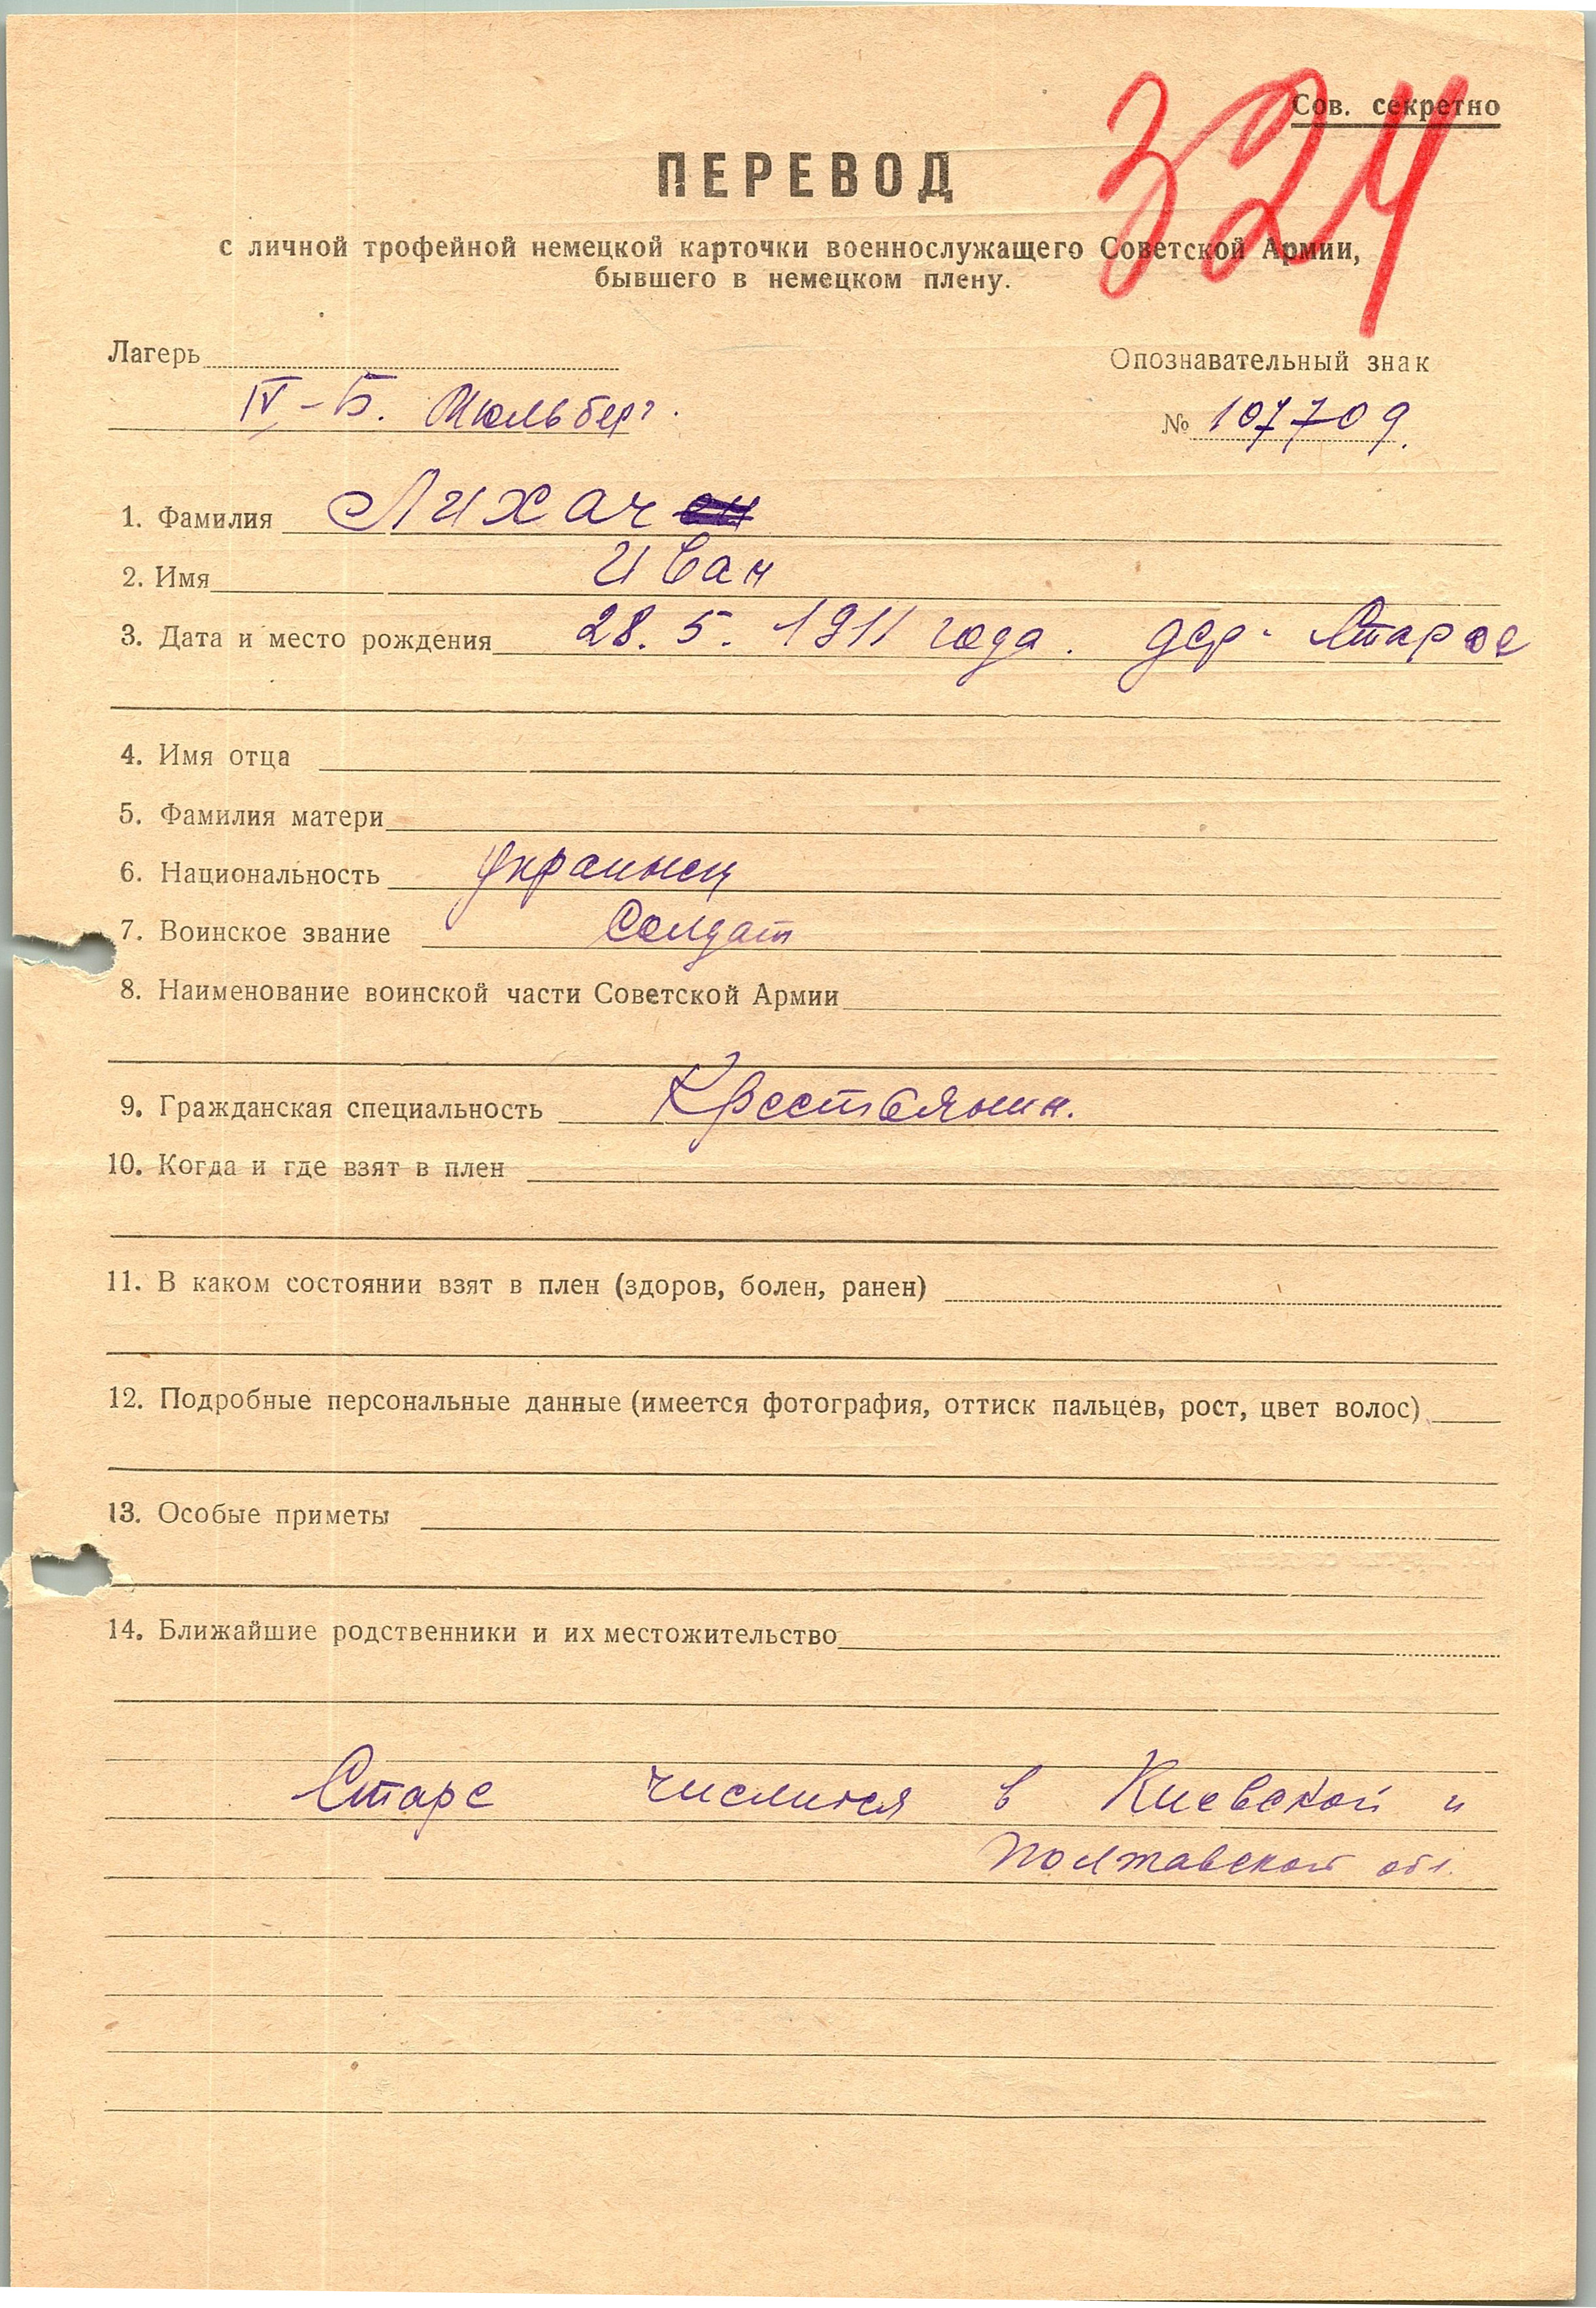 Сов. секретно
324
ПЕРЕВОД
с личной трофейной немецкой карточки военнослужащего Советской Армии,
бывшего в немецком плену.
Лагерь
Опознавательный знак
IV-Б. Мюльберг.
№ 107709.
1. Фамилия Лихач
2. Имя Иван
3. Дата и место рождения 28. 5. 1911 года. дер. Старое
4. Имя отца
5. Фамилия матери
6. Национальность украинец
7. Воинское звание Солдат
8. Наименование воинской части Советской Армии
9. Гражданская специальность Крестьянин.
10. Когда и где взят в плен
11. В каком состоянии взят в плен (здоров, болен, ранен)
12. Подробные персональные данные (имеется фотография, оттиск пальцев, рост, цвет волос)
13. Особые приметы
14. Ближайшие родственники и их местожительство
Старе числится в Киевской и
Полтавской обл.